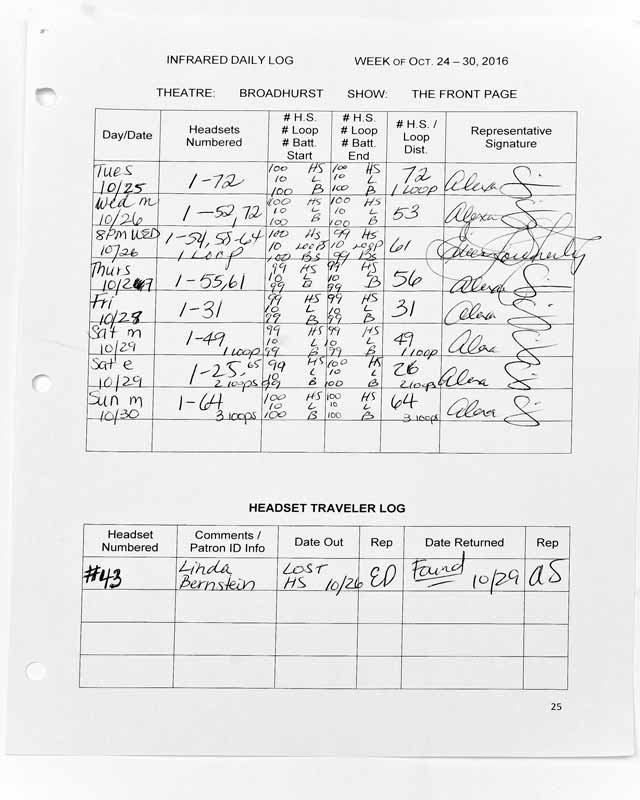 INFRARED DAILY LOG WEEK OF OCT. 24 – 30, 2016
THEATRE: BROADHURST SHOW: THE FRONT PAGE
Day/Date Headsets Numbered # H.S. # Loop # Batt. Start # H.S. # Loop # Batt. End # H.S. / Loop Dist. Representative Signature
Tues 10/25 1-72 100 HS 10 L 100 B 100 HS 10 L 100 B 72 1 Loop Alexa
Wed m 10/26 1-52, 72 100 HS 10 L 100 B 100 HS 10 L 100 B 53 Alexa
8pm WED 10/26 1-54, 55-64 1 LOOP 100 HS 10 LOOP 100 BS 99 HS 10 LOOP 99 BS 61
Thurs 1-55, 61 99 HS 10 L 99 B 99 HS 10 L 99 B 56 Alexa
Fri 10/28 1-31 99 HS 10 L 99 B 99 HS 10 L 99 B 31 Alexa
Sat m 10/29 1-49 1 loop 99 HS 10 L 99 B 99 HS 10 L 99 B 49 1 loop Alexa
Sat e 10/29 1-25, 65 2 loops 99 HS 10 L 99 B 100 HS 10 L 100 B 26 2 loops Alexa
Sun m 10/30 1-64 3 loops 100 HS 10 L 100 B 100 HS 10 L 100 B 64 3 loops Alexa
HEADSET TRAVELER LOG
Headset Numbered Comments / Patron ID Info Date Out Rep Date Returned Rep
#43 Linda Bernstein LOST HS 10/26 ED Found 10/29 AS
25